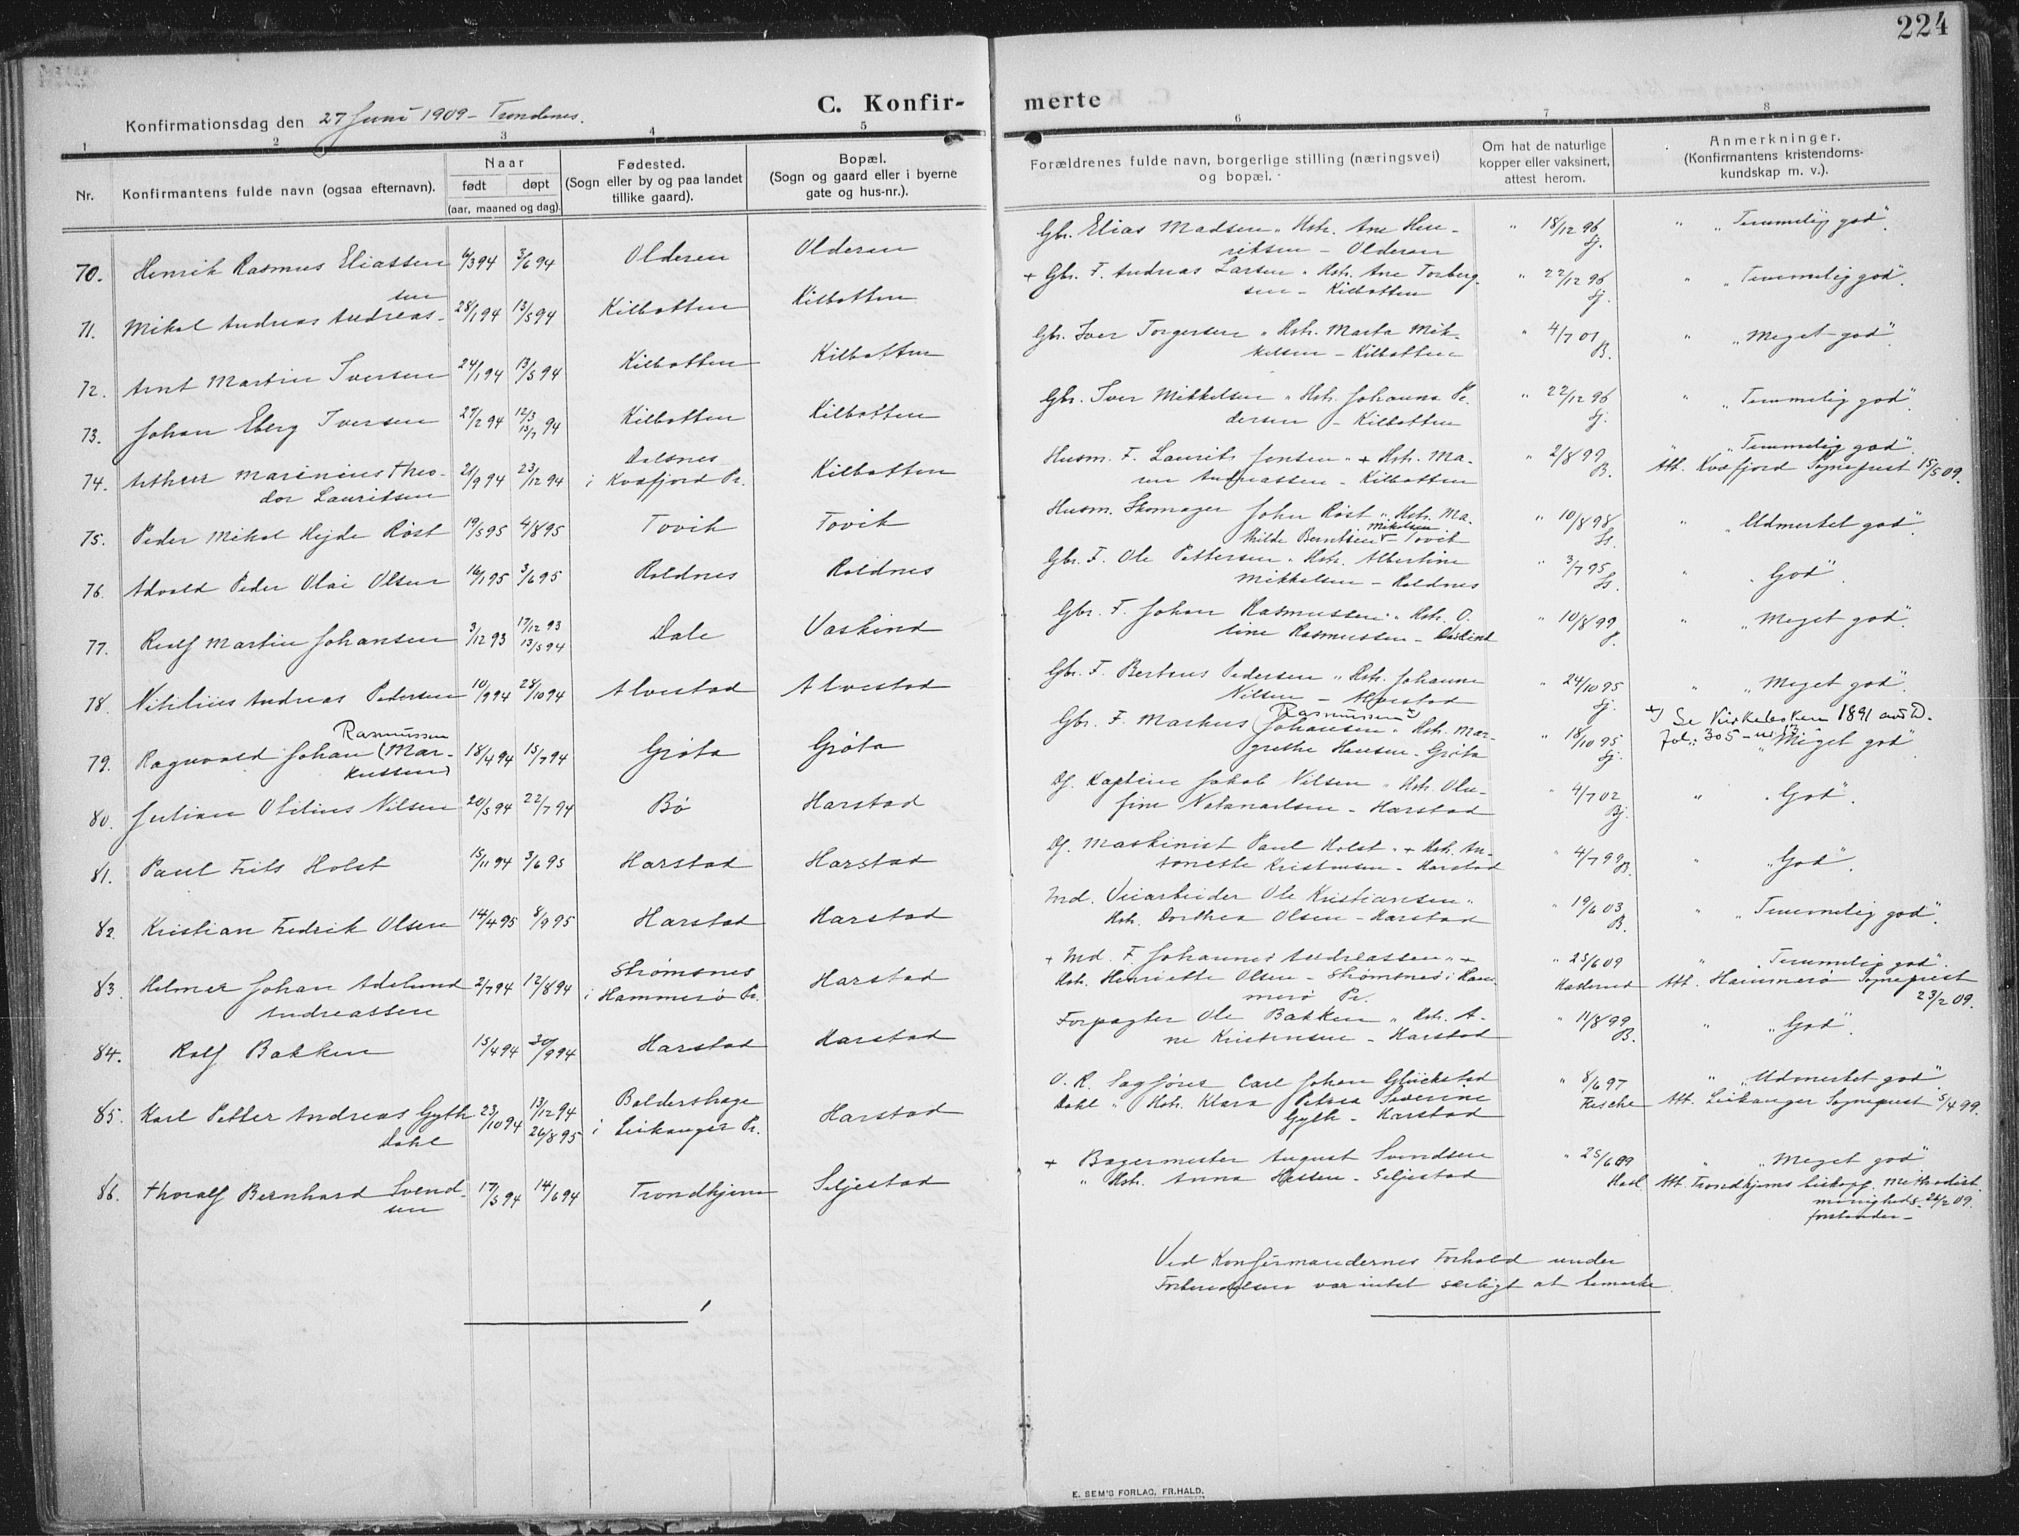 224
Konfirmationsdag den 27 Juni 1909 - Trondenes.
C. Konfir-
merte
1 2 3 4 5 6 7 8
Nr.
Konfirmantens fulde navn (ogsaa efternavn).
Naar
født døpt
(aar, maaned og dag).
Fødested.
(Sogn eller by og paa landet
tillike gaard).
Bopæl.
(Sogn og gaard eller i byerne
gate og hus-nr.).
Forældrenes fulde navn, borgerlige stilling (næringsvei)
og bopæl.
Om hat de naturlige
kopper eller vaksinert,
attest herom.
Anmerkninger.
(Konfirmantens kristendoms-
kundskap m. v.).
70. Henrik Rasmus Eliassen 6/3 94 3/6 94 Olderen Olderen
Gbr. Elias Madsen " Hstr. Ane Hen-
riksen - Olderen
" 18/12 96 Sj. " "Temmelig god".
71. Mikal Andreas Andreas-
sen 28/1 94 13/5 94 Kilbotten Kilbotten
+ Gbr. F. Andreas Larsen " Hstr. Ane Torberg-
sen - Kilbotten
" 22/12 96 Sj. " "Temmelig god".
72. Arnt Martin Iversen 24/1 94 13/5 94 Kilbotten Kilbotten
Gbr. Iver Torgersen " Hstr. Marta Mik-
kelsen - Kilbotten
" 4/7 01 B. " "Meget god".
73. Johan Eberg Iversen 27/2 94 12/3 13/7 94 Kilbotten Kilbotten
Gbr. Iver Mikkelsen " Hstr. Johanna Pe-
dersen - Kilbotten
" 22/12 96 Sj. " "Temmelig god".
74. Arthur Marinius Theo-
dor Lauritsen 21/9 94 23/12 94 Dalsnes
i Kvæfjord Pr. Kilbotten
Husm. F. Laurits Jensen " + Hstr. Ma-
ren Andreassen - Kilbotten
" 2/8 99 B. " "Temmelig god".
Att. Kvæfjord Sogneprest 15/5 09.
75. Peder Mikal Hejde Røst 19/5 95 4/8 95 Tovik Tovik
Husm. Skomager John Røst " Hstr. Ma-
thilde Berntsen Mikalsen - Tovik
" 10/8 98 Ss. " "Udmerket god".
76. Advald Peder Olai Olsen 16/1 95 3/6 95 Roldnes Roldnes
Gbr. F. Ole Pettersen " Hstr. Albertine
Mikkelsen - Roldnes
" 3/7 95 Ss. " "God".
77. Rolf Martin Johansen 3/12 93 17/12 93 13/5 94 Dale Vaskind
Gbr. F. Johan Rasmussen " Hstr. O-
line Rasmussen -
" 10/8 99 " "Meget god".
78. Andreas Pedersen 10/9 94 28/10 94 Alvestad Alvestad
Gbr. F. Berteus Pedersen " Hstr. Johanne
Nilsen - Alvestad
" 24/10 95 Sj. " "Meget god".
79. Ragnvald Johan Rasmussen (Mar-
kussen) 18/4 94 15/7 94 Grøta Grøta
Gbr. F. Markus (Johansen Rasmussen +) " Hstr. Mar-
grethe Hansen - Grøta
" 18/10 95 Sj. +) Se Kirkeboken 1891
Fol: 305 - "Meget god".
80. Julian Otelius Nilsen 20/5 94 22/7 94 Bø Harstad
Df. Kaptein Jakob Nilsen " Hstr. Olu-
fine Natanaelsen - Harstad
" 4/7 02 Bj. " "God".
81. Paul Frits Holst 15/11 94 3/6 95 Harstad Harstad
Df. Maskinist Paul Holst " + Hstr. An-
tonette Kristensen - Harstad
" 4/7 99 B. " "God".
82. Kristian Fredrik Olsen 14/4 95 8/9 95 Harstad Harstad
Md. Veiarbeider Ole Kristiansen "
Hstr. Dorthea Olsen - Harstad
" 19/6 03 B. " "Temmelig god".
83. Helmer Johan Adelund
Andreassen 2/7 94 12/8 94 Strømsnes
i Hammerø Pr. Harstad
+ Md. F. Johannes Andreassen " +
Hstr. Henriette Olsen - Strømsnes i Ham-
merø Pr.
" 25/6 09 "Temmelig god".
Att. Hammerø Sogneprest
23/2 09.
84. Rolf Bakken 15/4 94 30/9 94 Harstad Harstad
Forpagter Ole Bakken " Hstr. A-
ne Kristensen - Harstad
" 11/8 99 B. " "God".
85. Karl Petter Andreas Gyth
Dahl 23/10 94 13/12 94 26/8 95 Baldershage
i Leikanger Pr. Harstad
O. R. Sagfører Carl Johan Glückstad
Dahl " Hstr. Klara Petrea Severine
Gyth - Harstad
" 8/6 97 " "Udmerket god".
Att. Leikanger Sogneprest 5/4 99.
86. Thoralf Bernhard Svend-
sen 17/5 94 14/6 94 Trondhjem Seljestad
+ Bagermester August Svendsen
" Hstr. Anna Hassen - Seljestad
" 25/6 09 " "Meget god".
Att. Trondhjems biskopp. Methodist
menigheds- 26/2 09.
forstander -
Ved Konfirmandernes Forhold under
Forberedelsen var intet særligt at bemerke.
E. SEM'S FORLAG, FR.HALD.